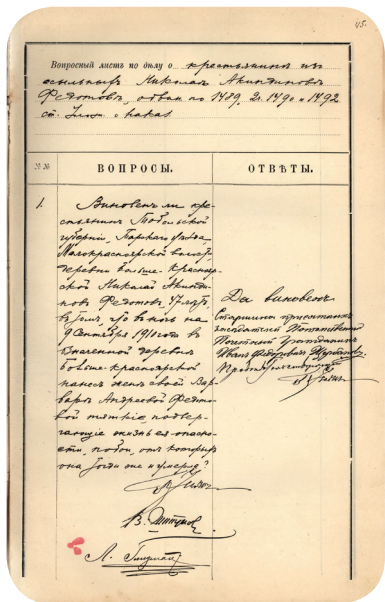 45.
Вопросный листъ по дѣлу о крестьянинѣ изъ
ссыльныхъ Николаѣ Акиндиновѣ
Федотовѣ, обвин. по 1489, 2 ч. 1490 и 1492
ст. Улож. о наказ.
№№ ВОПРОСЫ. ОТВѢТЫ.
1. Виновенъ ли кре-
стьянинъ Тобольской
губерніи, Тарскаго уѣзда,
Малокрасноярской волости,
деревни Больше-Краснояр-
ской Николай Акинди-
новъ Федотовъ, 47 лѣтъ,
въ томъ, что въ ночь на
9 Сентября 1910 года въ
означенной деревнѣ
Больше-Красноярской
нанесъ женѣ своей Вар-
варѣ Андреевой Федото-
вой тяжкіе, подвер-
гающіе жизнь ея опасно-
сти, побои, отъ которыхъ
она тогда же и умерла?
Да виновенъ
Старшина присяжныхъ
засѣдателей Потомственный
Почетный Гражданинъ
Иванъ Федоровичъ
Предсѣдательствующій
В.
Л.